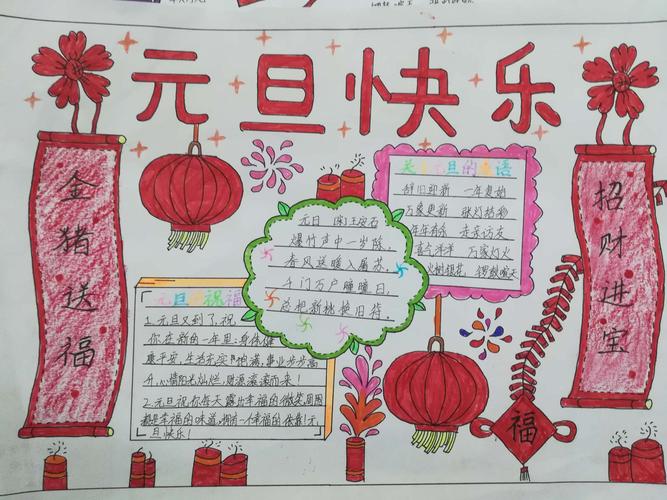 元旦快乐
金猪送福
招财进宝
元日
王安石
爆竹声中一岁除,
春风送暖入屠苏.
千门万户曈曈日,
总把新桃换旧符.
关 元旦的 语
辞旧迎新 一年复始
万象更新 张灯结彩
年年有余 走亲访友
喜气洋洋 万家灯火
树银花 锣鼓喧天
元旦 祝福
1.元旦又到了,祝
你在新的一年里:身体健
康平安,生活充实 满,事业步步高
升,心情阳光灿烂,财源滚滚而来!
2.元旦祝你每天 幸福的微笑,周围
都是幸福的味道,拥有一个幸福的 !元
旦快乐!
福